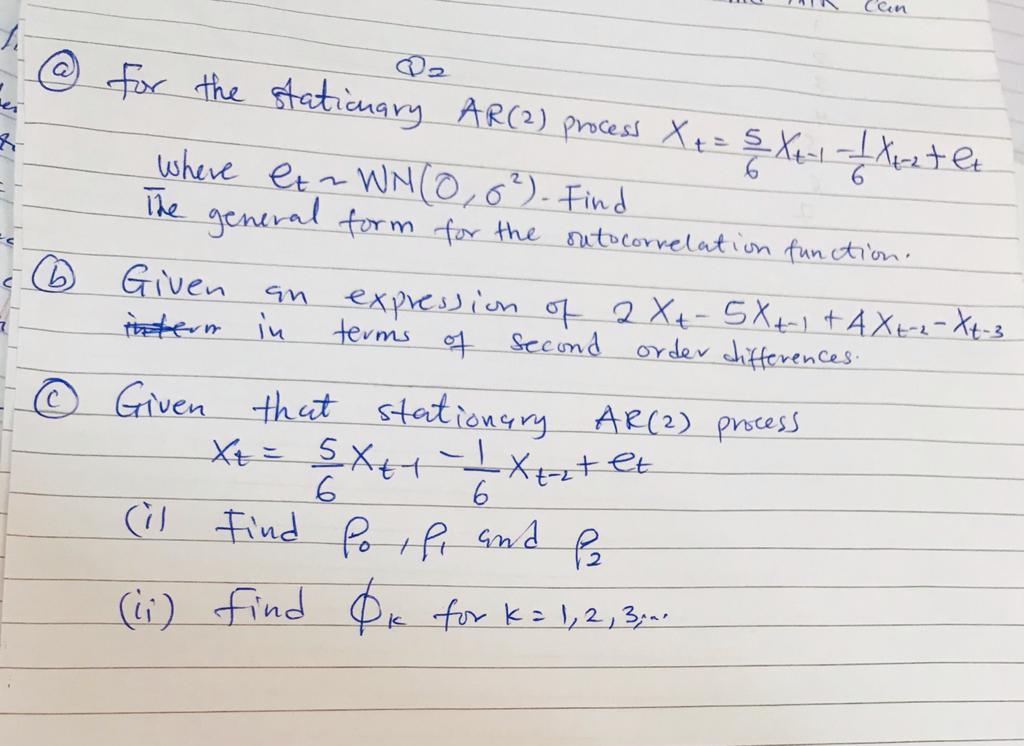 Can
Q2
(a) For the stationary AR(2) process Xt = 5/6 Xt-1 - 1/6 Xt-2 + et
where et ~ WN(0, σ²). Find
The general form for the autocorrelation function.
(b) Given an expression of 2Xt - 5Xt-1 + 4Xt-2 - Xt-3
in terms of second order differences.
(c) Given that stationary AR(2) process
Xt = 5/6 Xt-1 - 1/6 Xt-2 + et
(i) Find ρ0, ρ1 and ρ2
(ii) find ϕK for k = 1, 2, 3, ...